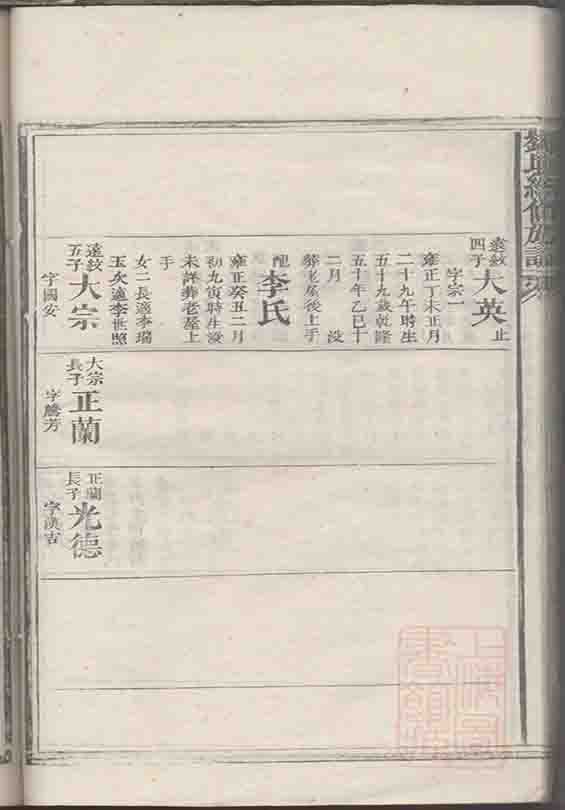 遠紋
四子
大英
止
字宗一
雍正丁未正月
二十九午時生
五十九歲乾隆
五十年乙巳十
二月　没
葬老屋後上手
配
李氏
雍正癸丑二月
初九寅時生没
未詳葬老屋上
手
女二長適李瑞
玉次適李世照
遠紋
五子
大宗
字國安
大宗
長子
正蘭
字騰芳
正蘭
長子
光德
字漢吉